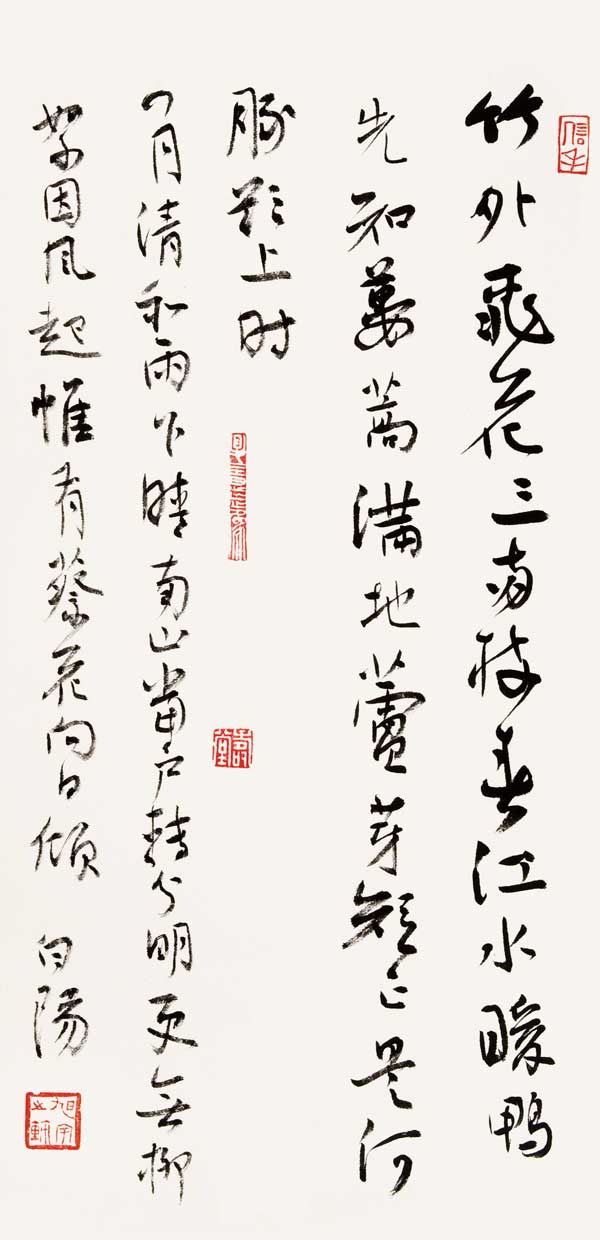 信手
竹外飛花三两枝春江水暖鴨
先知蔞蒿滿地蘆芽短正是河
豚欲上时
四月清和雨乍晴南山當户轉分明更無柳
絮因風起惟有葵花向日傾 陽
旭宇